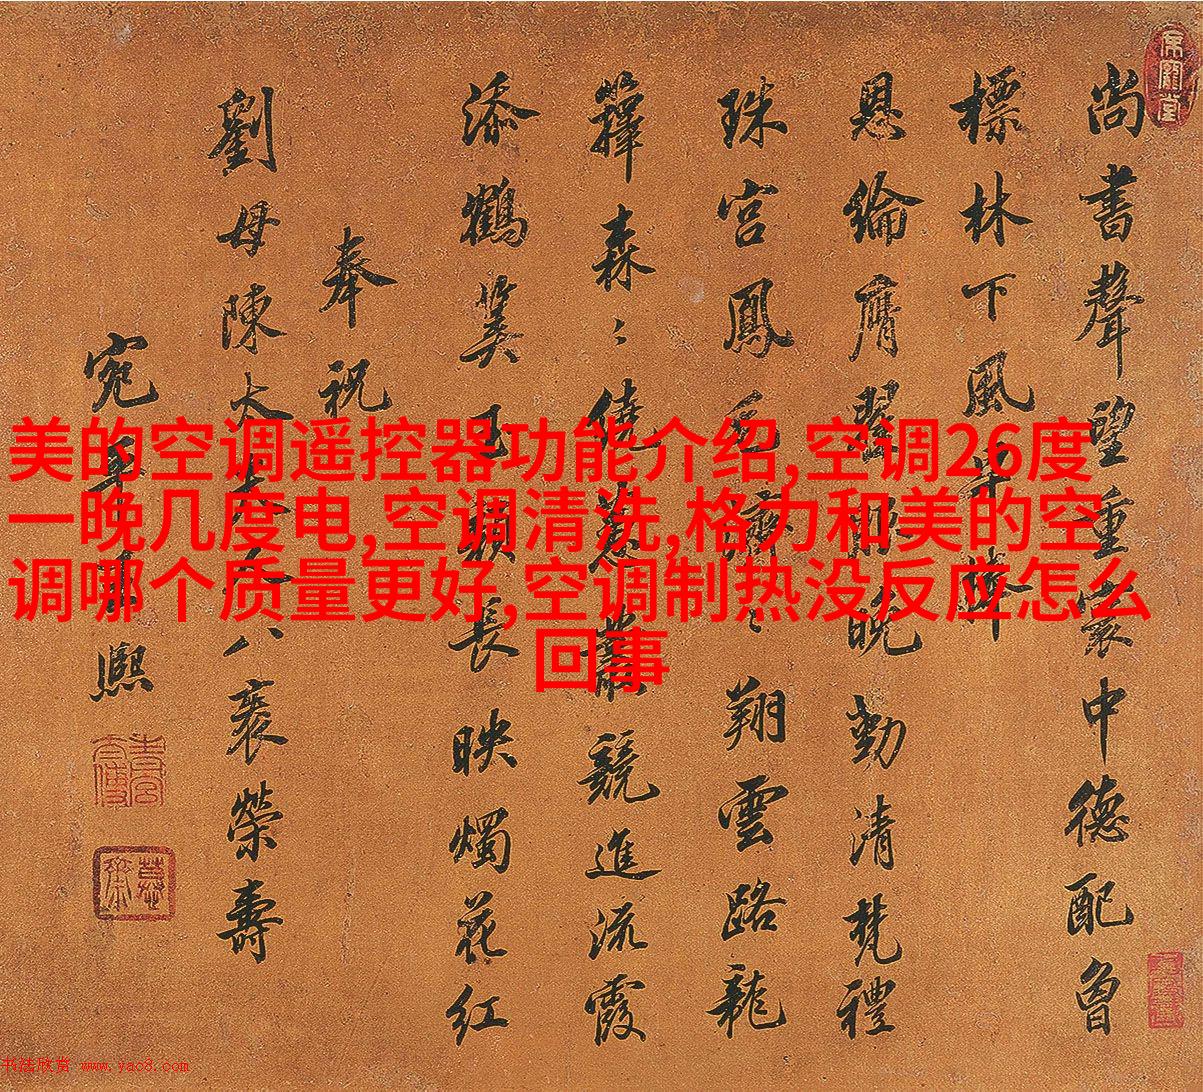 美的空调遥控器功能介绍,空调26度
一晚几度电,空调清洗,格力和美的空
调哪个质量更好,空调制热没反应怎么
回事
尚書聲望重寰中德配魯
標林下風早降
恩綸膺翟服晚勤清梵禮
珠宮鳳毛濟〻翔雲路龍
籜森〻繞蕙叢競進流霞
添鶴筭長映燭花红
奉祝
劉母陳太夫人八袠榮壽
宛平王熙
书法欣赏 www.yac8.com